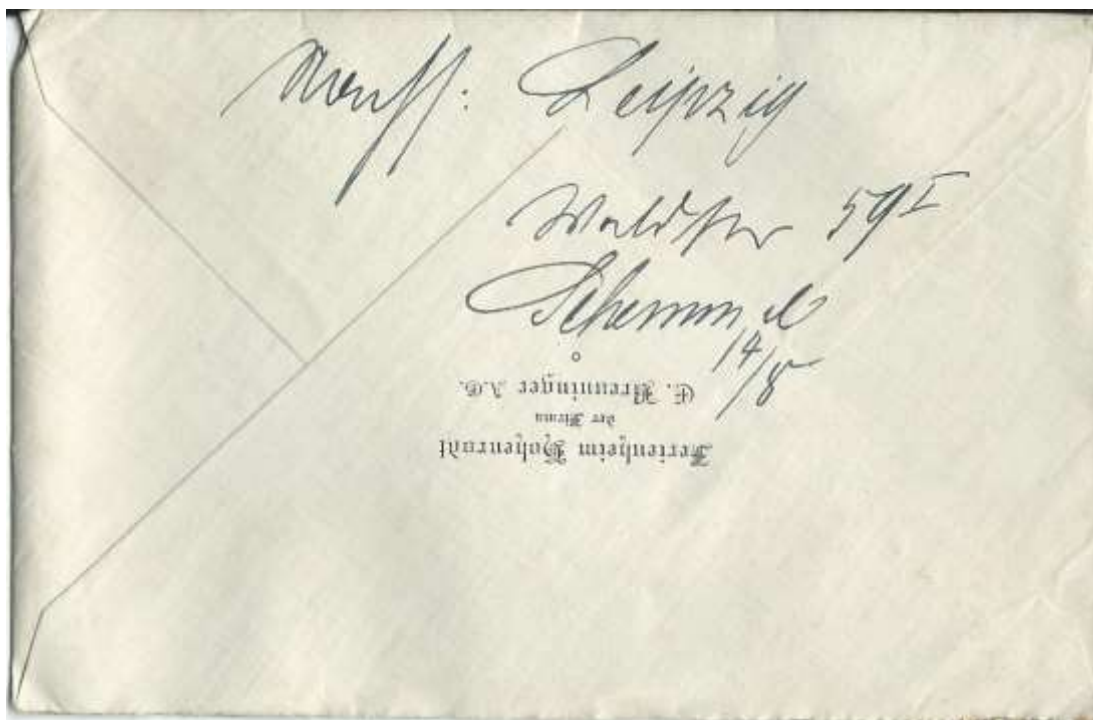 Leipzig
Waldstr 59 I
Schemmel
14/8
Ferienheim Hohenrodt
der Firma
E. Breuninger A.G.